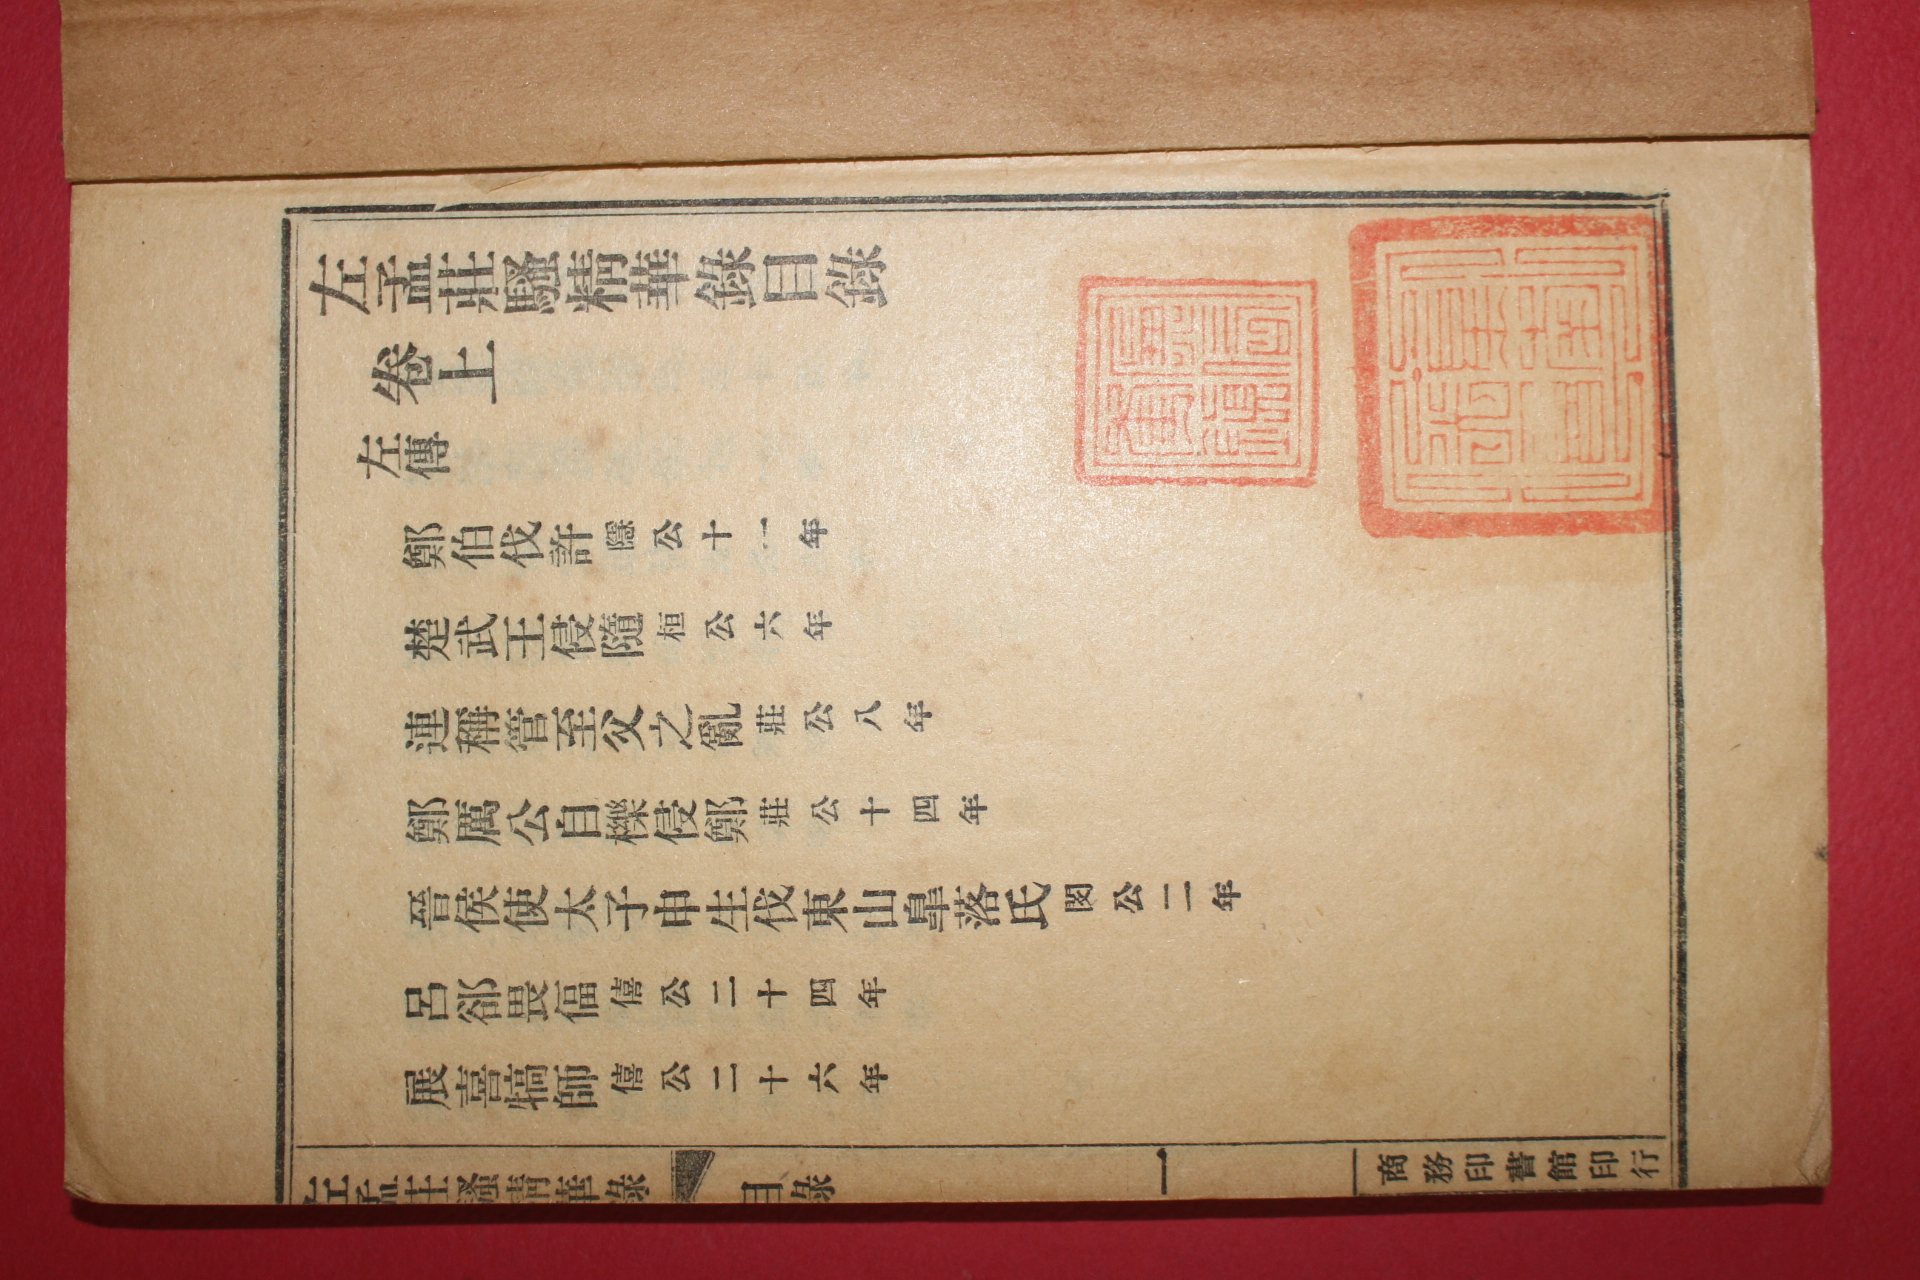 左孟莊騷精華錄目錄
卷上
左傳
鄭伯伐許 隱公十一年
楚武王侵隨 桓公六年
連稱管至父之亂 莊公八年
鄭厲公自櫟侵鄭 莊公十四年
晉侯使太子申生伐東山臯落氏 閔公二年
呂郤畏偪 僖公二十四年
展喜犒師 僖公二十六年
左孟莊騷精華錄 目錄 一 商務印書館印行